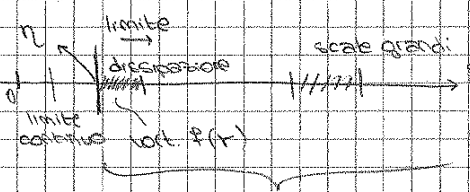 η
limite
dissipazione
scale grandi
0
limite
continuo
vort. f(r)